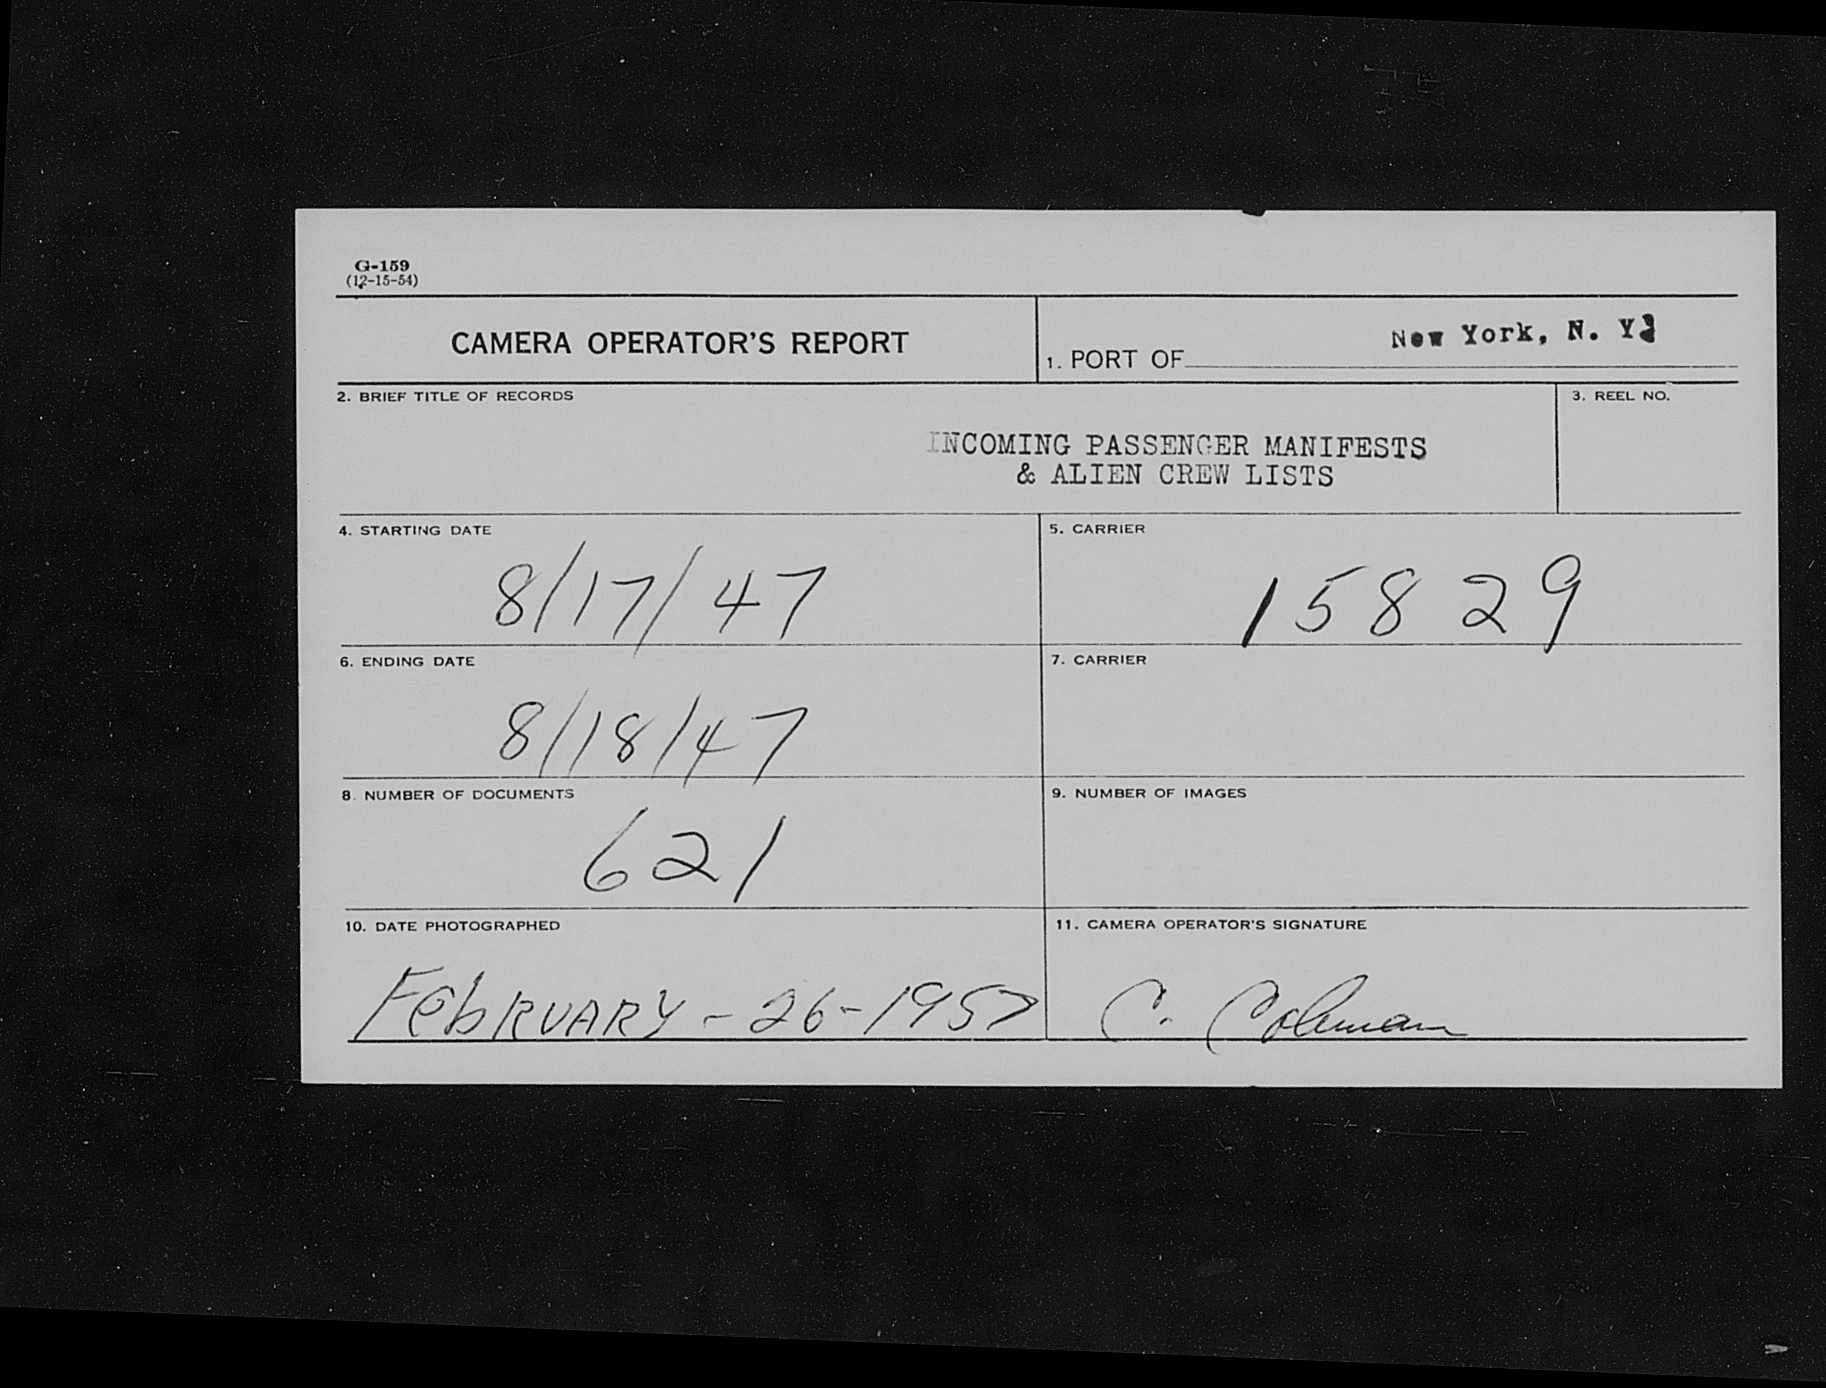 G-159
(12-15-54)
CAMERA OPERATOR'S REPORT
1. PORT OF New York, N. Y.
2. BRIEF TITLE OF RECORDS
INCOMING PASSENGER MANIFESTS
& ALIEN CREW LISTS
3. REEL NO.
4. STARTING DATE
8/17/47
5. CARRIER
15829
6. ENDING DATE
8/18/47
7. CARRIER
8. NUMBER OF DOCUMENTS
621
9. NUMBER OF IMAGES
10. DATE PHOTOGRAPHED
FebRUARY-26-1957
11. CAMERA OPERATOR'S SIGNATURE
C. Coleman